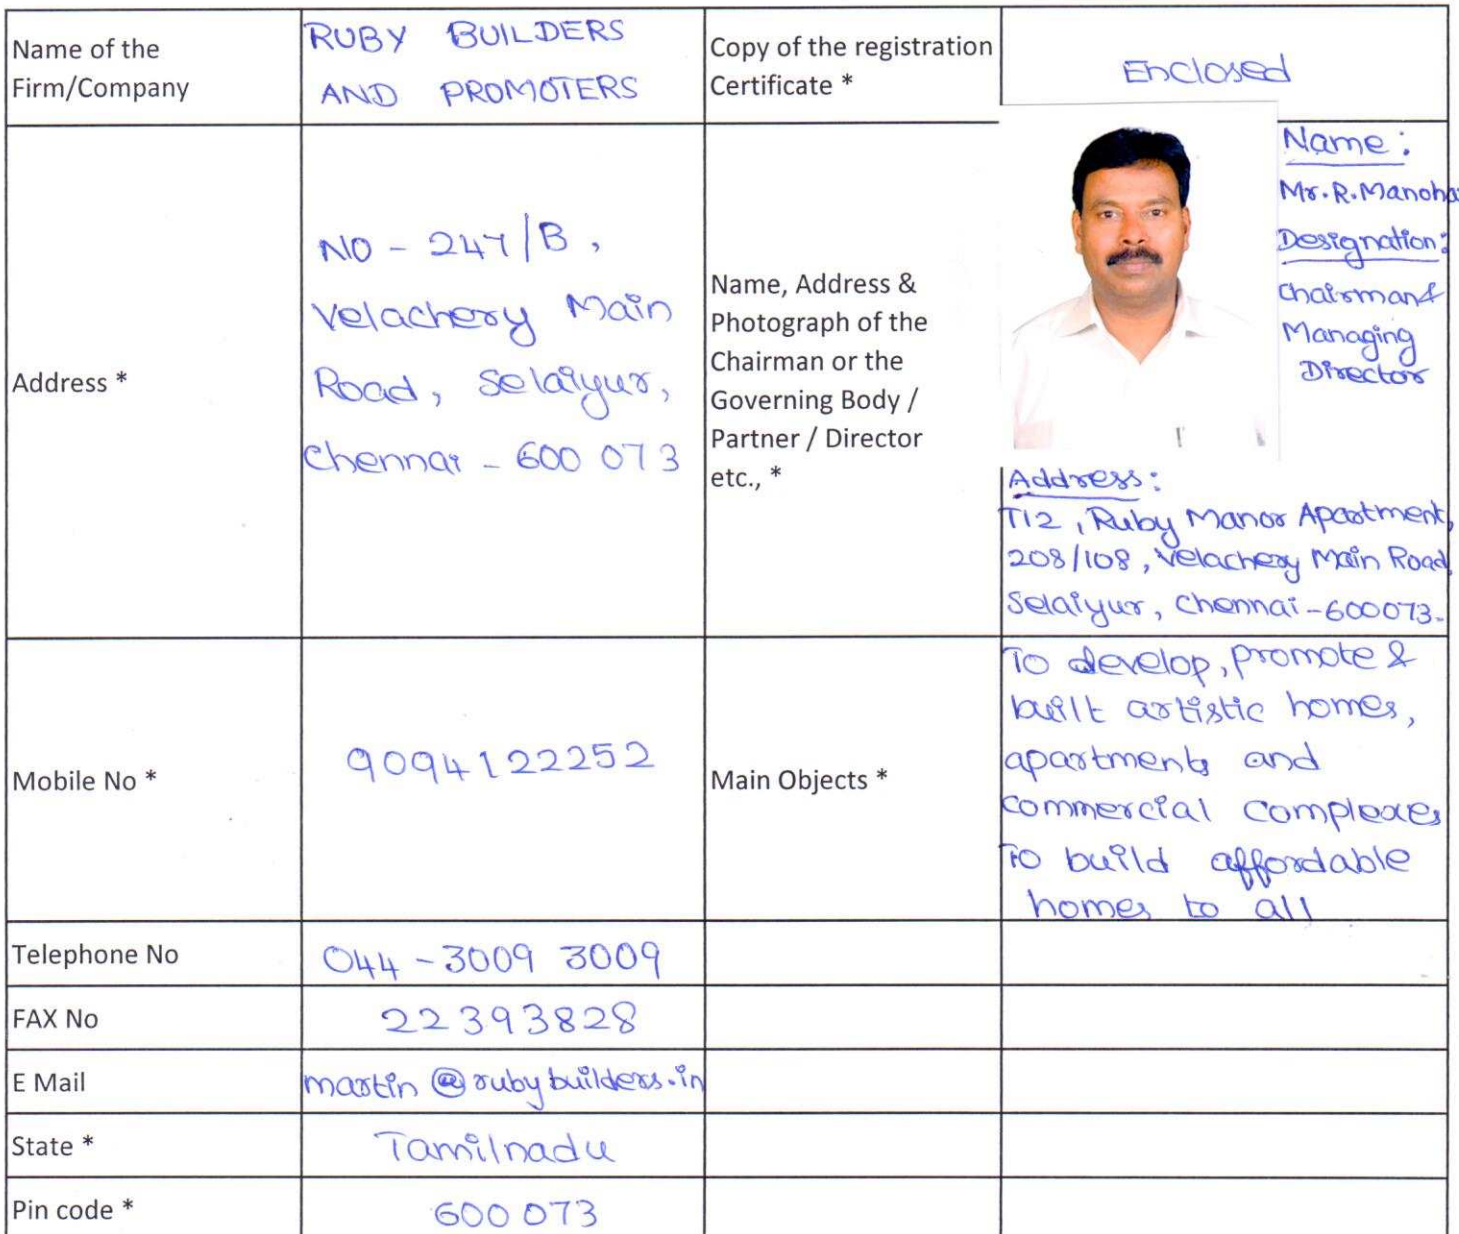 Name of the
Firm/Company
RUBY BUILDERS
AND PROMOTERS
Copy of the registration
Certificate *
Enclosed
Address *
NO - 247/B,
Velachery Main
Road, Selaiyur,
Chennai - 600 073
Name, Address &
Photograph of the
Chairman or the
Governing Body /
Partner / Director
etc., *
Name:
Mr. R. Manohar
Designation:
Chairman &
Managing
Director
Address:
T12, Ruby Manor Apartment,
208/108, Velachery Main Road,
Selaiyur, Chennai - 600073.
Mobile No *
9094122252
Main Objects *
To develop, promote &
built artistic homes,
apartments and
commercial complexes
To build affordable
homes to all
Telephone No
044 - 3009 3009
FAX No
22393828
E Mail
martin@rubybuilders.in
State *
Tamilnadu
Pin code *
600 073